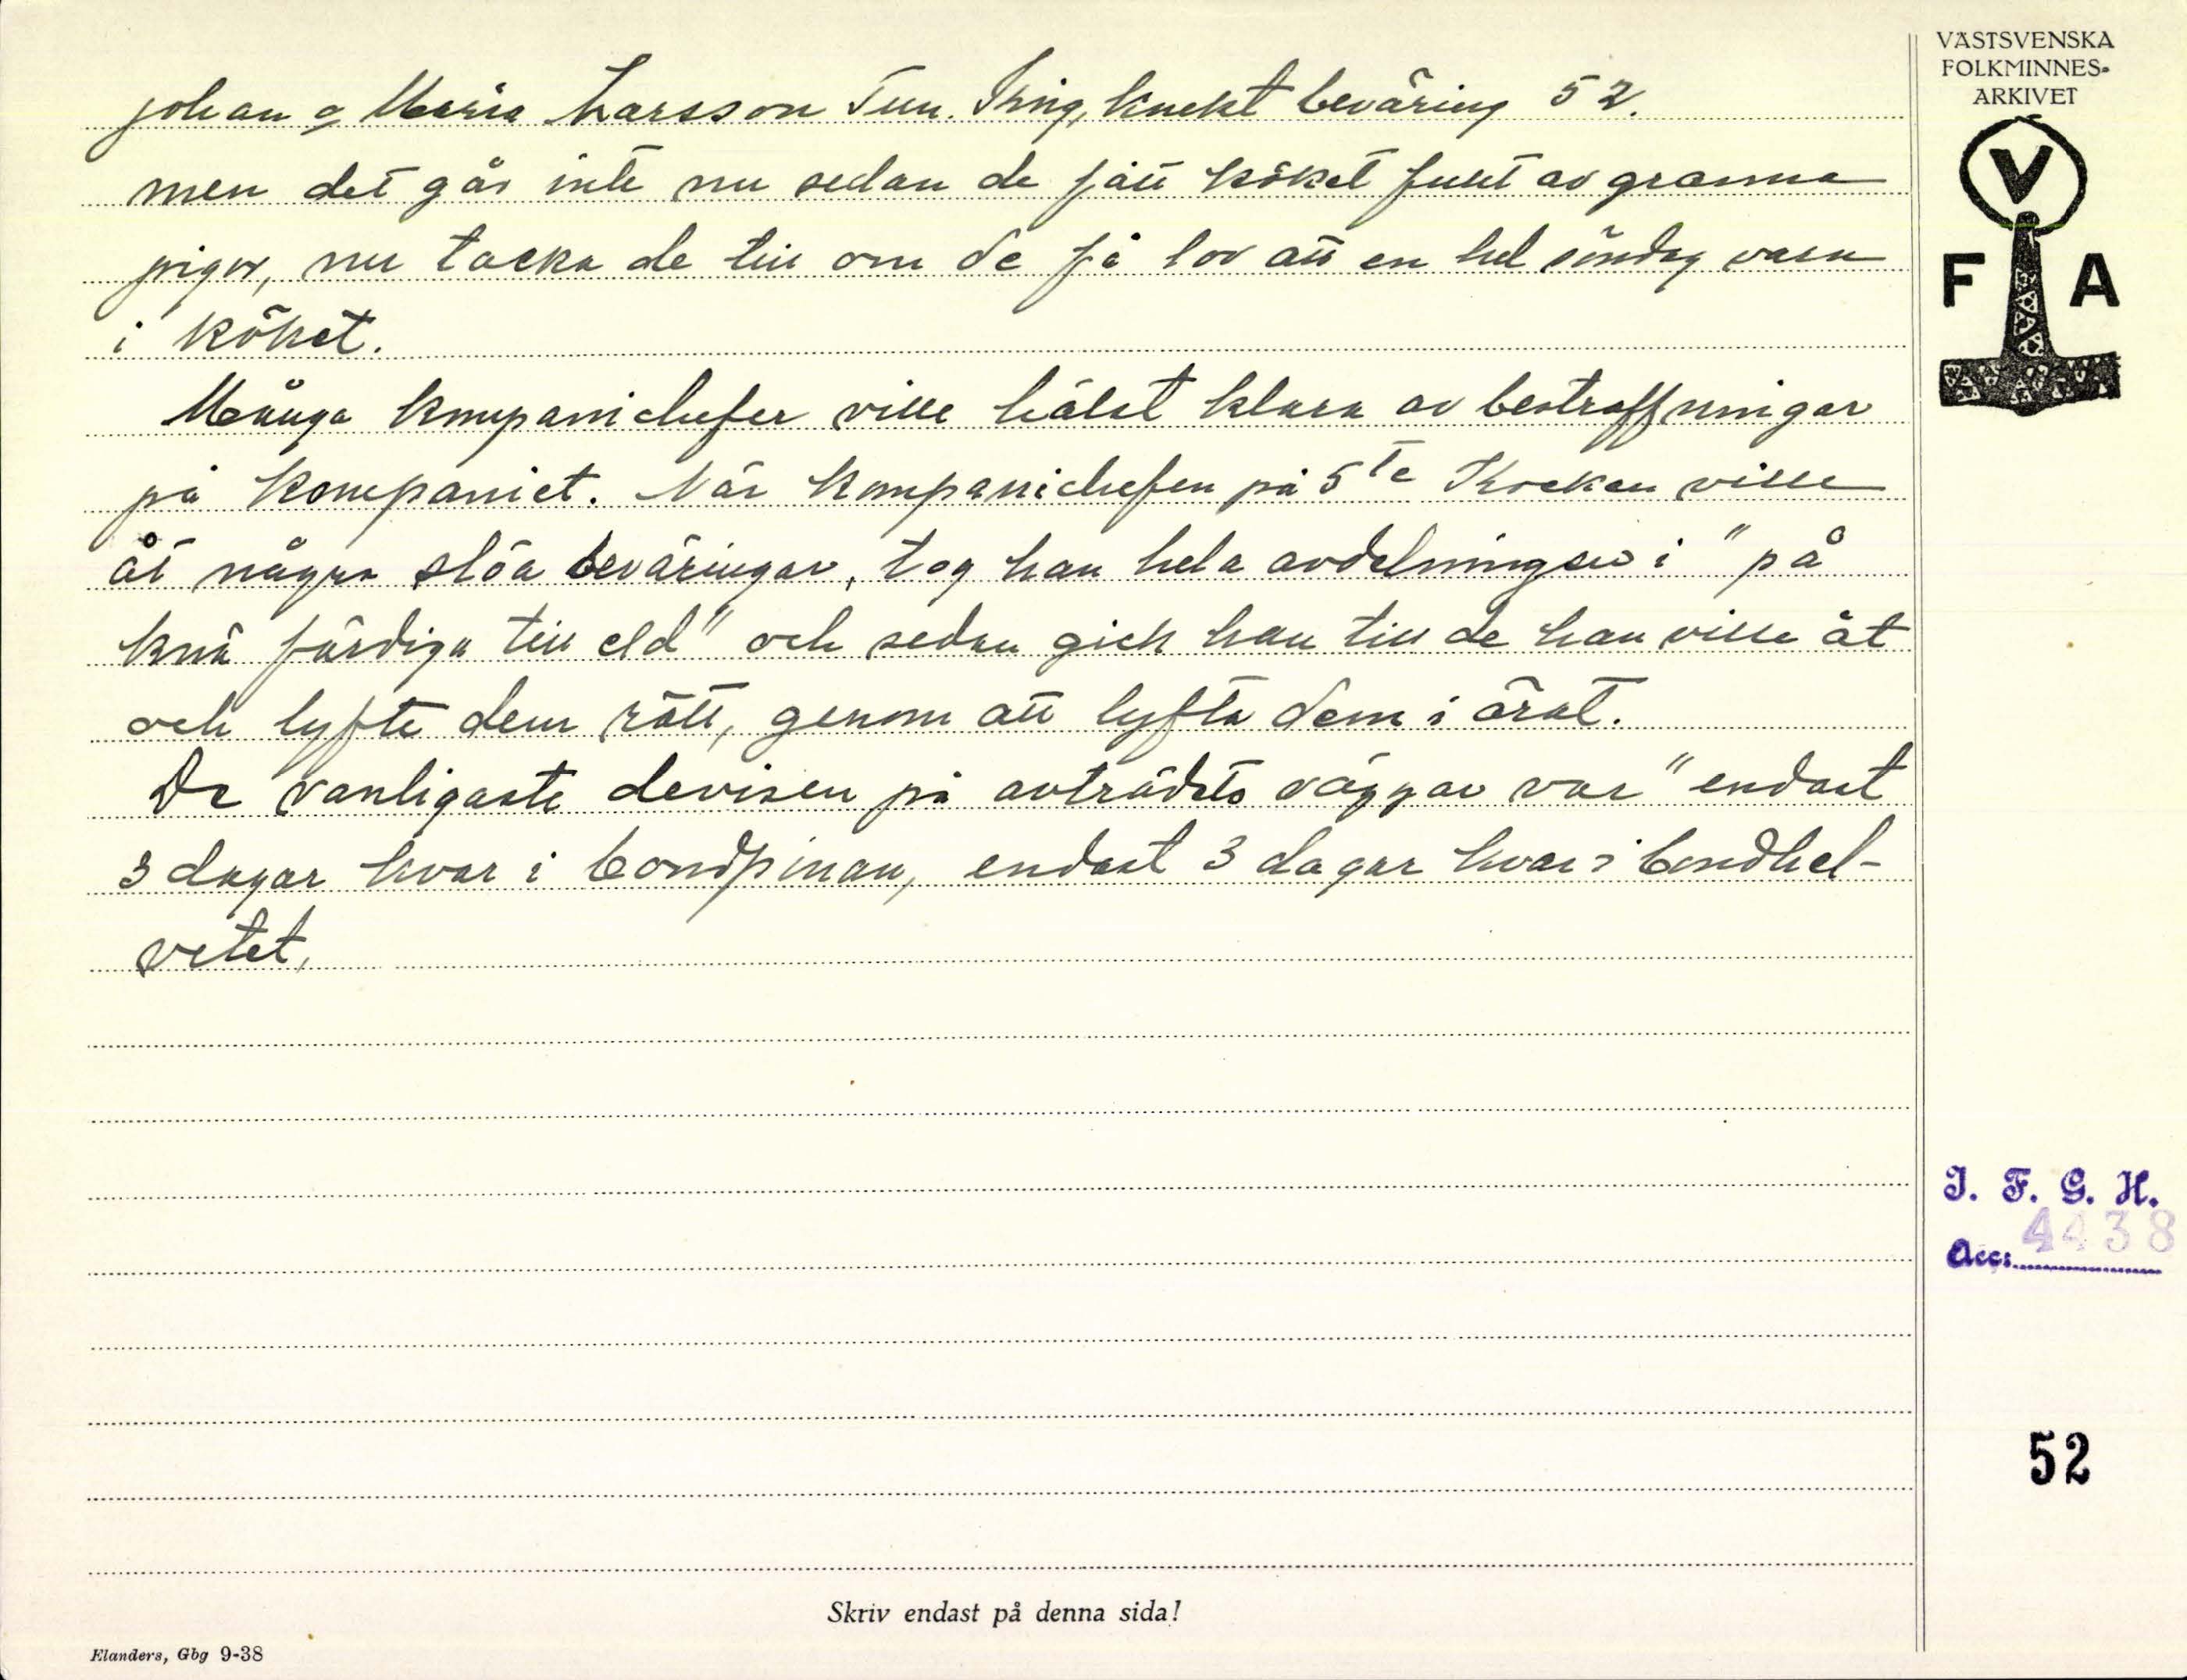 Johan o Maria Larsson Tun. Kring, knekt beväring 52.
men det går inte nu sedan de fått köket fullt av granna
pigor, nu tacka de till om de få lov att en hel söndag vara
i köket.
Många kompanichefer ville hälst klara av bestraffningar
på kompaniet. När kompanichefen på 5te Kocken ville
åt några slöa beväringar, tog han hela avdelningen i "på
knä färdiga till eld" och sedan gick han till de han ville åt
och lyfte dem rätt, genom att lyfta dem i örat.
De vanligaste devisen på avträdets väggar var "endast
3 dagar kvar i bondpinan, endast 3 dagar kvar i bondhel-
vetet.
Skriv endast på denna sida!
Elanders, Gbg 9-38
VÄSTSVENSKA
FOLKMINNES-
ARKIVET
V
F A
I. F. G. H.
Acc. 4438
52